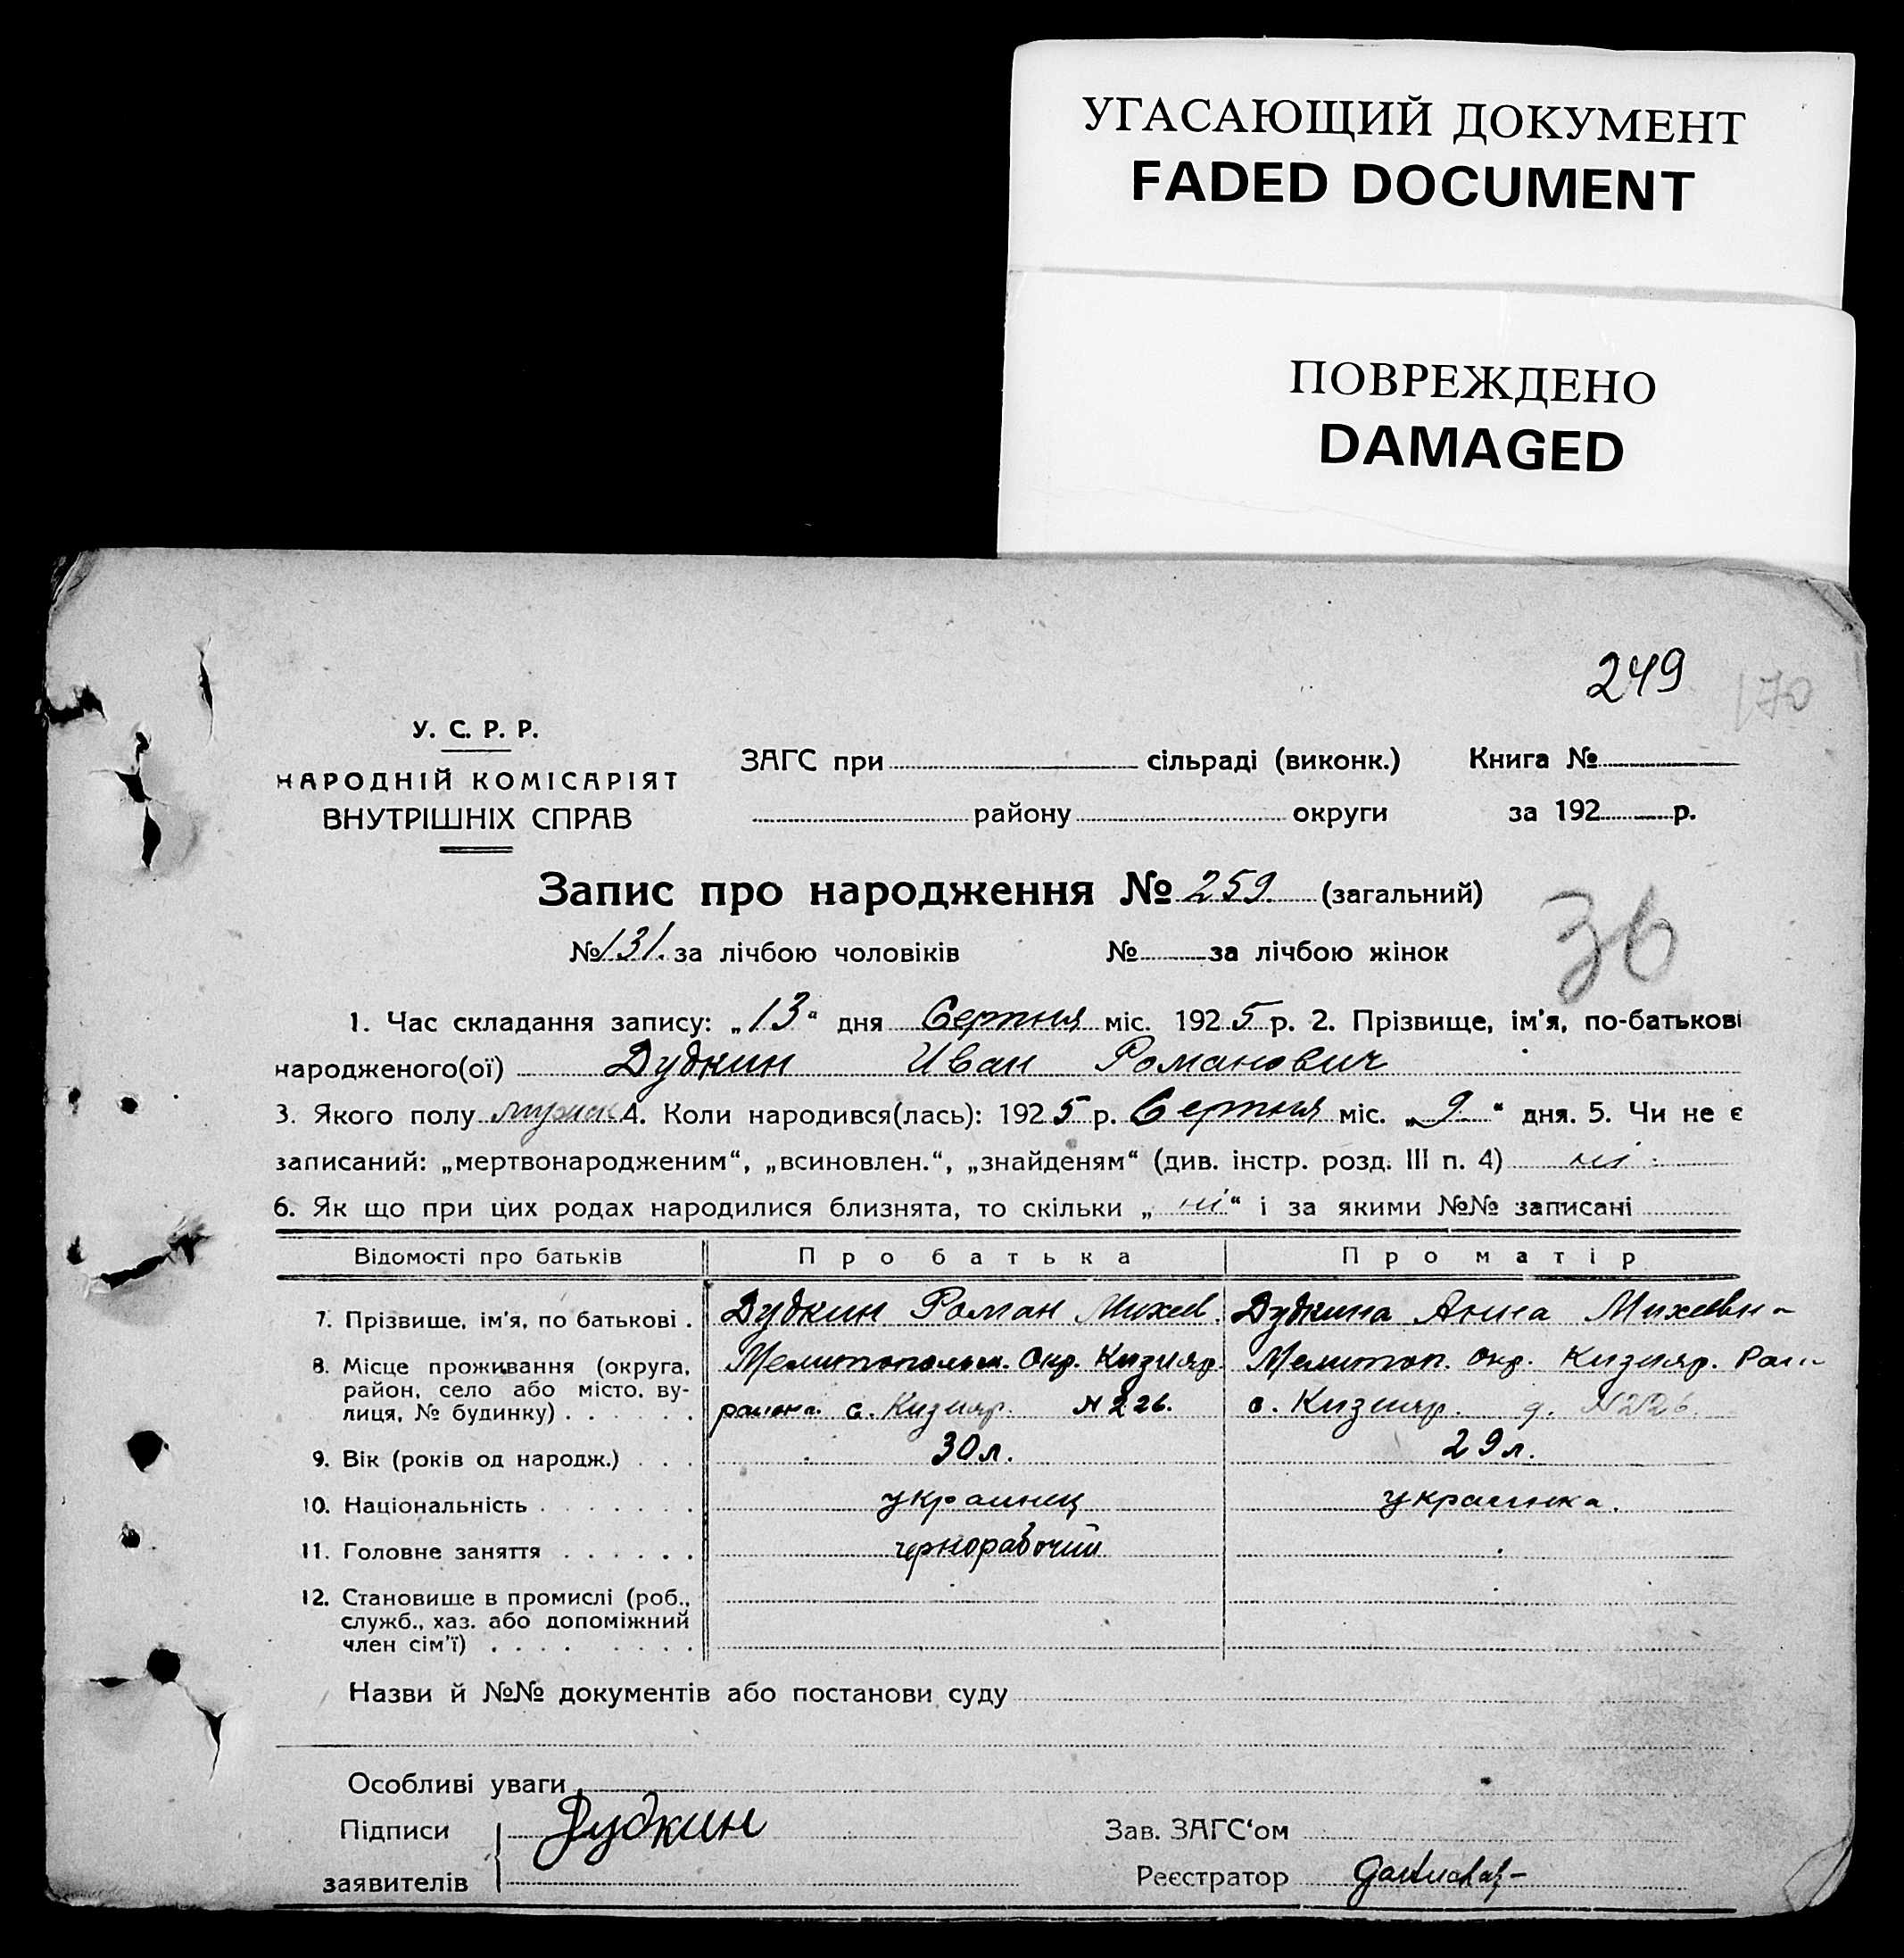 УГАСАЮЩИЙ ДОКУМЕНТ
FADED DOCUMENT
ПОВРЕЖДЕНО
DAMAGED
249 170
У. С. Р. Р.
НАРОДНІЙ КОМІСАРІЯТ
ВНУТРІШНІХ СПРАВ
ЗАГС при сільраді (виконк.) Книга №
району округи за 192 р.
Запис про народження № 259. (загальний)
36
№ 131. за лічбою чоловіків № за лічбою жінок
1. Час складання запису: „13“ дня Серпня міс. 1925 р. 2. Прізвище, ім'я, по-батькові
народженого(ої) Дудкин Иван Романович
3. Якого полу 4. Коли народився(лась): 1925 р. Серпня міс. „9“ дня. 5. Чи не є
записаний: „мертвонародженим“, „всиновлен.“, „знайденям“ (див. інстр. розд. III п. 4) ні
6. Як що при цих родах народилися близнята, то скільки „ні“ і за якими №№ записані
Відомості про батьків Про батька Про матір
7. Прізвище, ім'я, по батькові . Дудкин Роман Михеев. Дудкина Анна Михеевн
8. Місце проживання (округа, Мелитопольск. Окр. Кизияр. Мелитоп. окр. Кизияр. Рай
район, село або місто, ву- района с. Кизияр. № 226. с. Кизияр. д. № 226.
лиця, № будинку) . . . . . .
9. Вік (років од народж.) . . . 30 л. 29 л.
10. Національність . . . . . . . украинец украинка.
11. Головне заняття . . . . . . чернорабочий
12. Становище в промислі (роб.,
служб., хаз. або допоміжний
член сім'ї) . . . . . . . .
Назви й №№ документів або постанови суду
Особливі уваги
Підписи Дудкин Зав. ЗАГС‘ом
заявителів Реєстратор